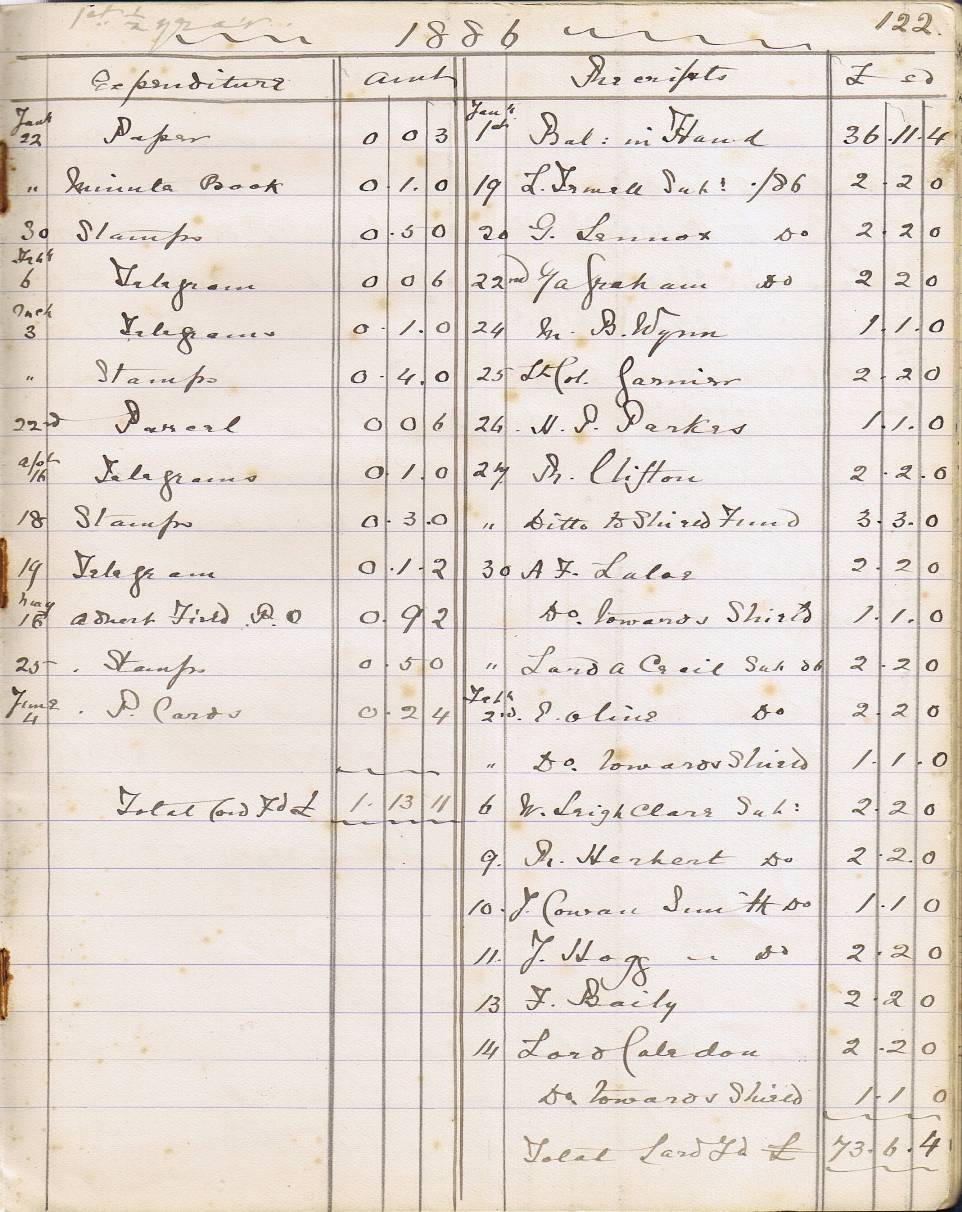 1886 122.
Expenditure Amt Receipts £ s d
Jany 22 Paper 0 0 3 Jany 1st Bal: in Hand 36.11.4
" Minute Book 0.1.0 19 L. Irwell Sub: /86 2.2 0
30 Stamps 0.5 0 20 G. Lennox Do 2.2 0
Feby 6 Telegram 0 0 6 22nd Graham Do 2 2 0
Mch 3 Telegrams 0.1.0 24 M. B. Wynn 1.1.0
" Stamps 0.4.0 25 Lt Col. Garnier 2.2 0
22nd Parcel 0 0 6 26. H. P. Parkes 1.1.0
Apl 16 Telegrams 0.1.0 27 R. Clifton 2.2.0
18 Stamps 0.3.0 " Ditto to Shield Fund 3.3.0
19 Telegram 0.1.2 30 A F. Lalor 2.2 0
May 18 Advert Field P.O 0.9 2 Do. towards Shield 1.1.0
25. Stamps 0.5 0 " Lord A Cecil Sub 86 2.2 0
June 4. P. Cards 0.2 4 Feby 2nd. Do 2.2 0
" Do. towards Shield 1.1.0
Total Card Fd £ 1.13 11 6 W. Leigh Clare Sub: 2.2 0
9. R. Herbert Do 2.2.0
10. J. Cowan Smith Do 1.1 0
11. J. Hogg " Do 2.2 0
13 F. Baily 2.2 0
14 Lord Caledon 2.2 0
Do. towards Shield 1.1 0
Total Card Fd £ 73.6.4